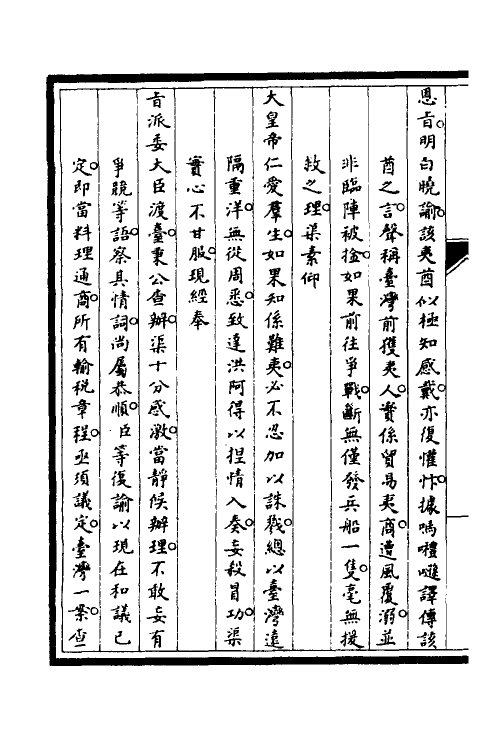 恩旨。明白曉諭。該夷酋似極知感戴。亦復懽忭。據嗎禮遜譯傳該
酋之言。聲稱臺灣前獲夷人。實係貿易夷商。遭風覆溺。並
非臨陣被擒。如果前往爭戰。斷無僅發兵船一隻。毫無援
救之理。渠素仰
大皇帝仁愛羣生。如果知係難夷。必不忍加以誅戮。總以臺灣遠
隔重洋。無從周悉。致達洪阿得以捏情入奏。妄殺冒功。渠
實心不甘服。現經奉
旨派委大臣渡臺。秉公查辦。渠十分感激。當靜候辦理。不敢妄有
爭競等語。察其情詞。尚屬恭順。臣等復諭以現在和議已
定。即當料理通商。所有輸稅章程。亟須議定。臺灣一案。查